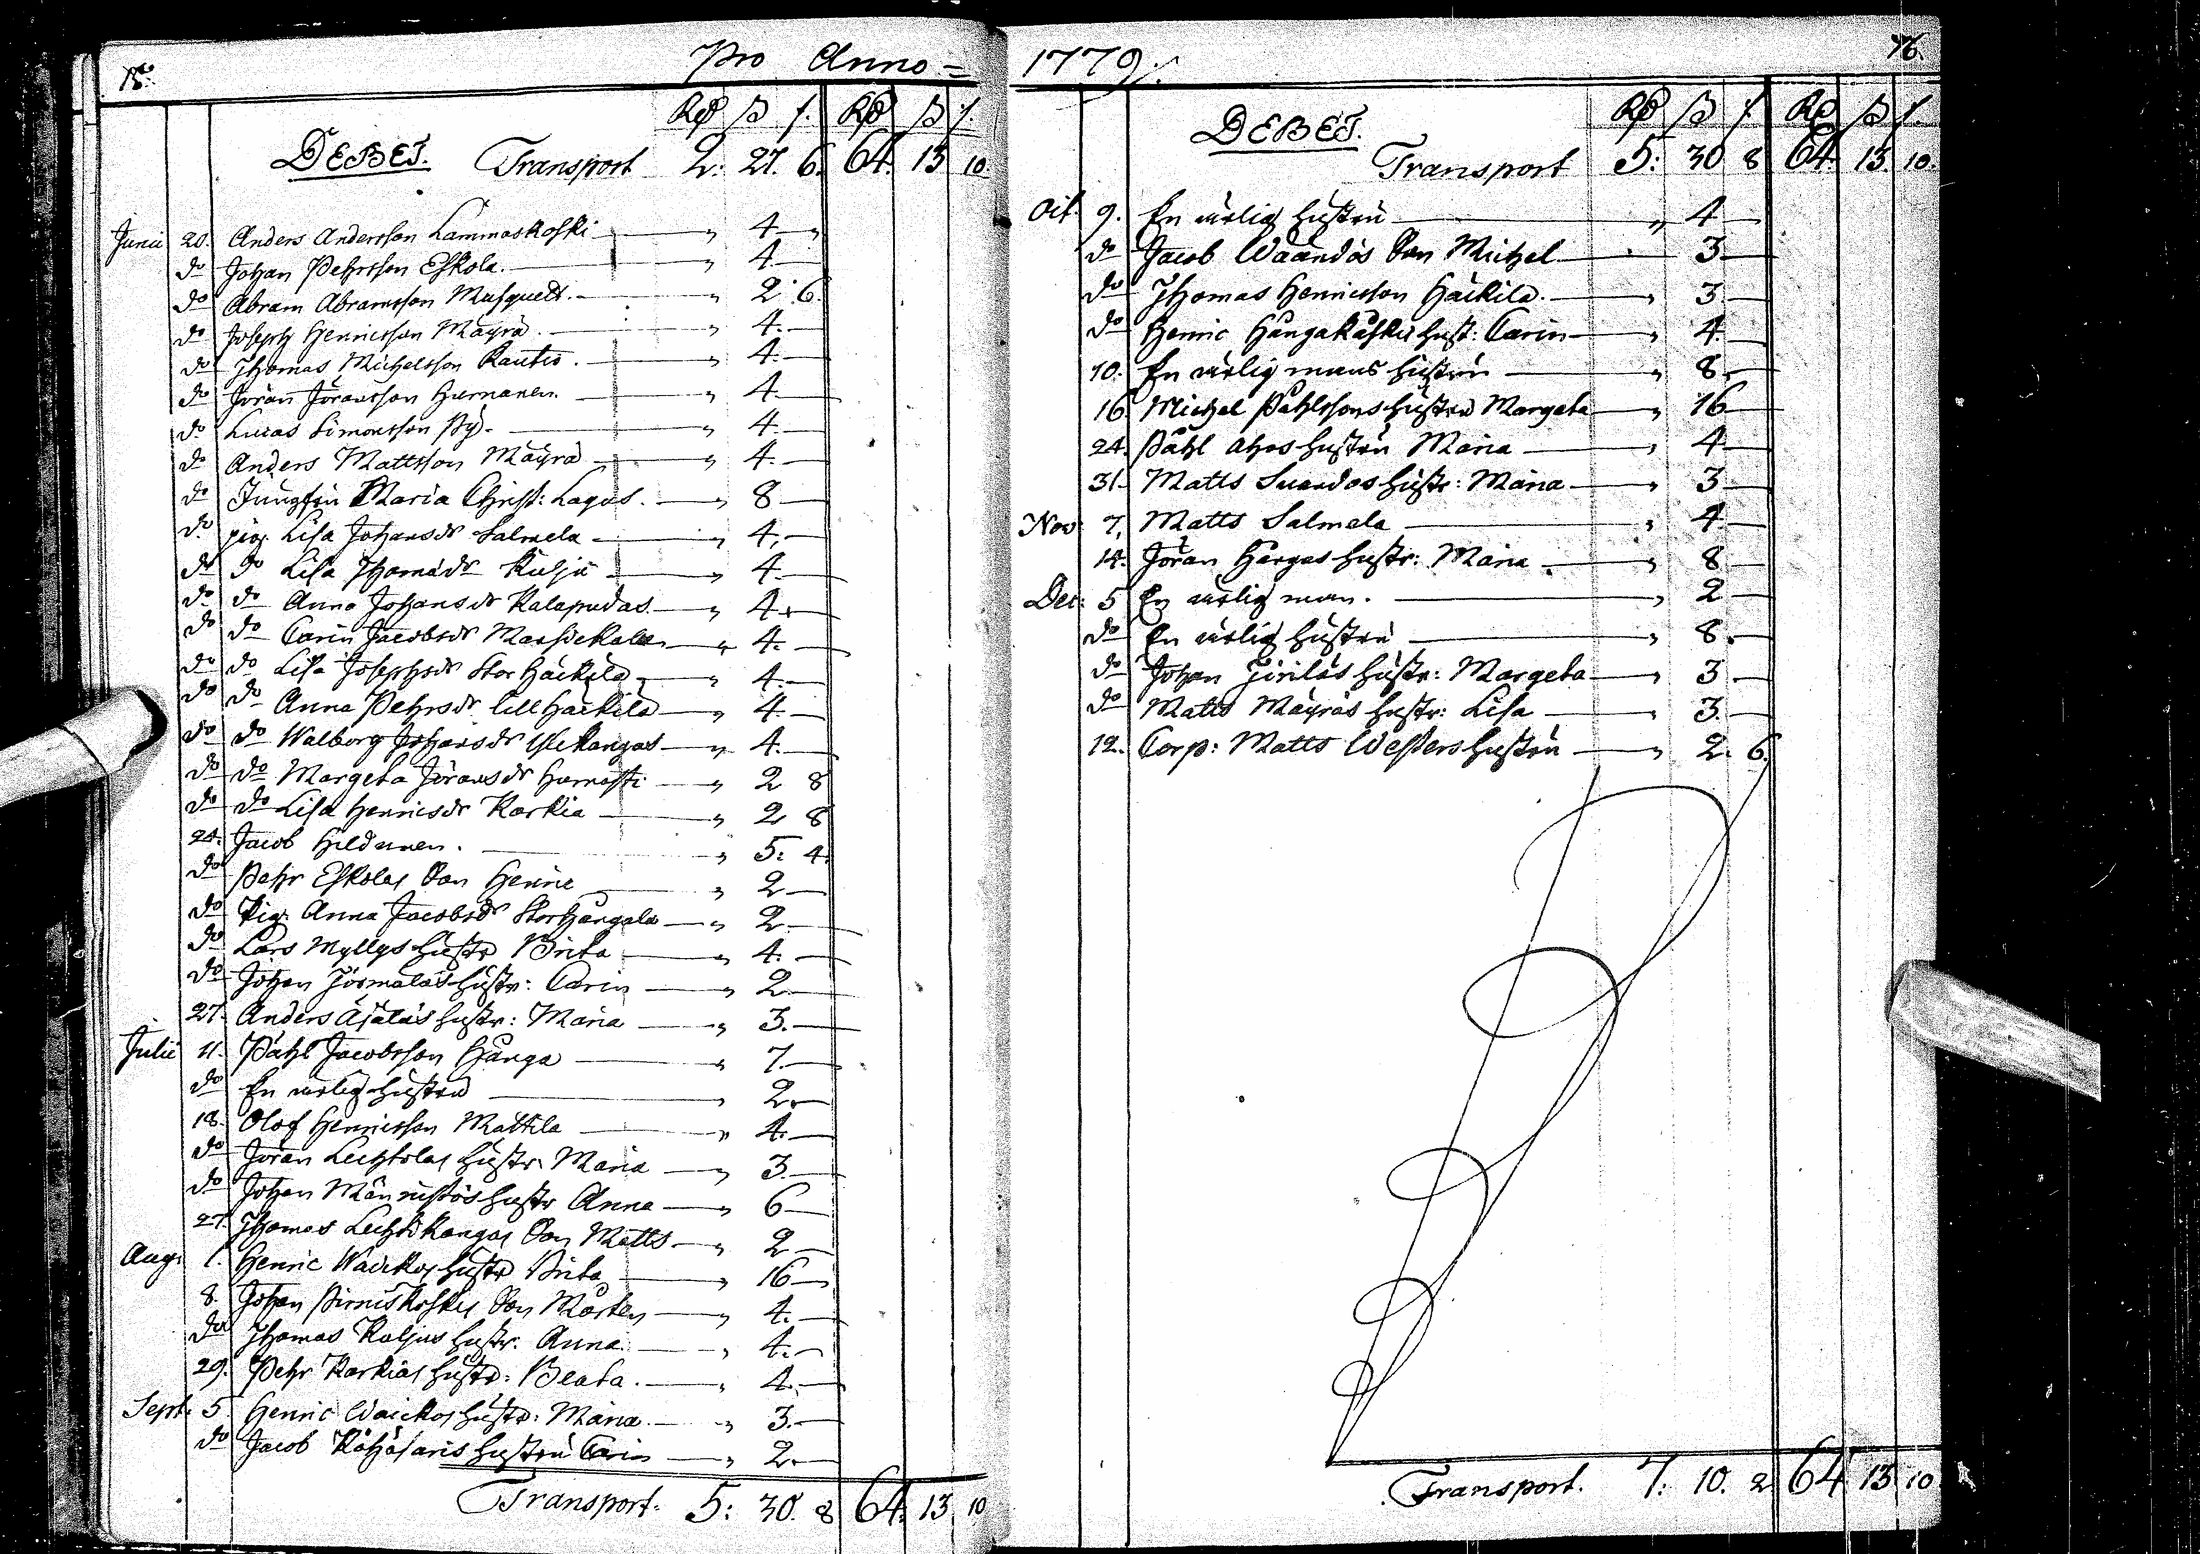 15.
Pro Anno =
Rd ß /. Rd ß /.
DEBET. Transport 2: 27. 6. 64. 13 10.
Junii 20. Anders Andersson Lammaskoski " 4 "
do Johan Pehrsson Eskola. " 4
do Abram Abramsson Musquett. " 2 6.
do Joseph Henricsson Mäyrä. " 4.
do Thomas Michelsson Rautio. " 4.
do Jöran Jöransson Hurnanen. " 4.
do Lucas Simonsson Pÿ. " 4.
do Anders Mattsson Mäyrä " 4.
do Jungfru Maria Christ: Lagus. " 8
do pig. Lisa Johansdr Salmela " 4.
do do Lisa Thomædr Kulju " 4.
do do Anna Johansdr Kalapudas " 4.
do do Carin Jacobsdr " 4.
do do Lisa Josephsdr Stor Häikilä " 4.
do do Anna Pehrsdr lill Häikilä " 4
do do Walborg Johansdr Ylikangas " 4.
do do Margeta Jöransdr " 2 8
do do Lisa Henricsdr Karkia " 2 8
24. Jacob Hildunen. " 5: 4.
do Pehr Eskolas Son Henric " 2
do Pig: Anna Jacobsdr StorHångala " 2.
do Lars Myllys hustr Brita " 4.
do Johan hustr: Carin " 2
27. Anders hustr: Maria " 3.
Julii 11. Påhl Jacobsson Hånga " 7.
do En ärlig hustru " 2.
18. Olof Henricsson Mattila " 4.
do Jöran Lechtolas hustr. Maria " 3.
do Johan Männistös hustr Anna " 6
27. Thomas Lechtikangas Son Matts " 2
Aug: 1. Henric Waickos hustr Brita " 16
8. Johan Pirneskoskis Son Mårten " 4.
do Thomas Kuljus hustr: Anna " 4.
29. Pehr Karkias hustr: Beata. " 4.
Sept. 5. Henric Waickos hustr: Maria. " 3.
do Jacob hustru Carin " 2.
Transport. 5: 30. 8 64. 13 10
1779/.
16.
Rd ß /. Rd ß /.
DEBET.
Transport 5: 30 8 64. 13. 10.
Oct. 9. En ärlig hustru " 4
do Jacob Son Michel 3
do Thomas Henricsson Häikilä. " 3
do Henric hust: Carin " 4.
10. En ärlig mans hustru " 8.
16. Michel Påhlssons hustru Margeta " 16
24. Påhl Ahos hustru Maria " 4
31. Matts hustr: Maria " 3
Nov: 7. Matts Salmela " 4.
14. Jöran Hångas hustr: Maria. " 8
Dec: 5 En ärlig man. " 2
do En ärlig hustru " 8.
do Johan hustr: Margeta " 3.
do Matts Mäyräs hustr: Lisa " 3.
12. Corp: Matts Westers hustru " 2. 6.
Transport. 7: 10. 2 64 13 10